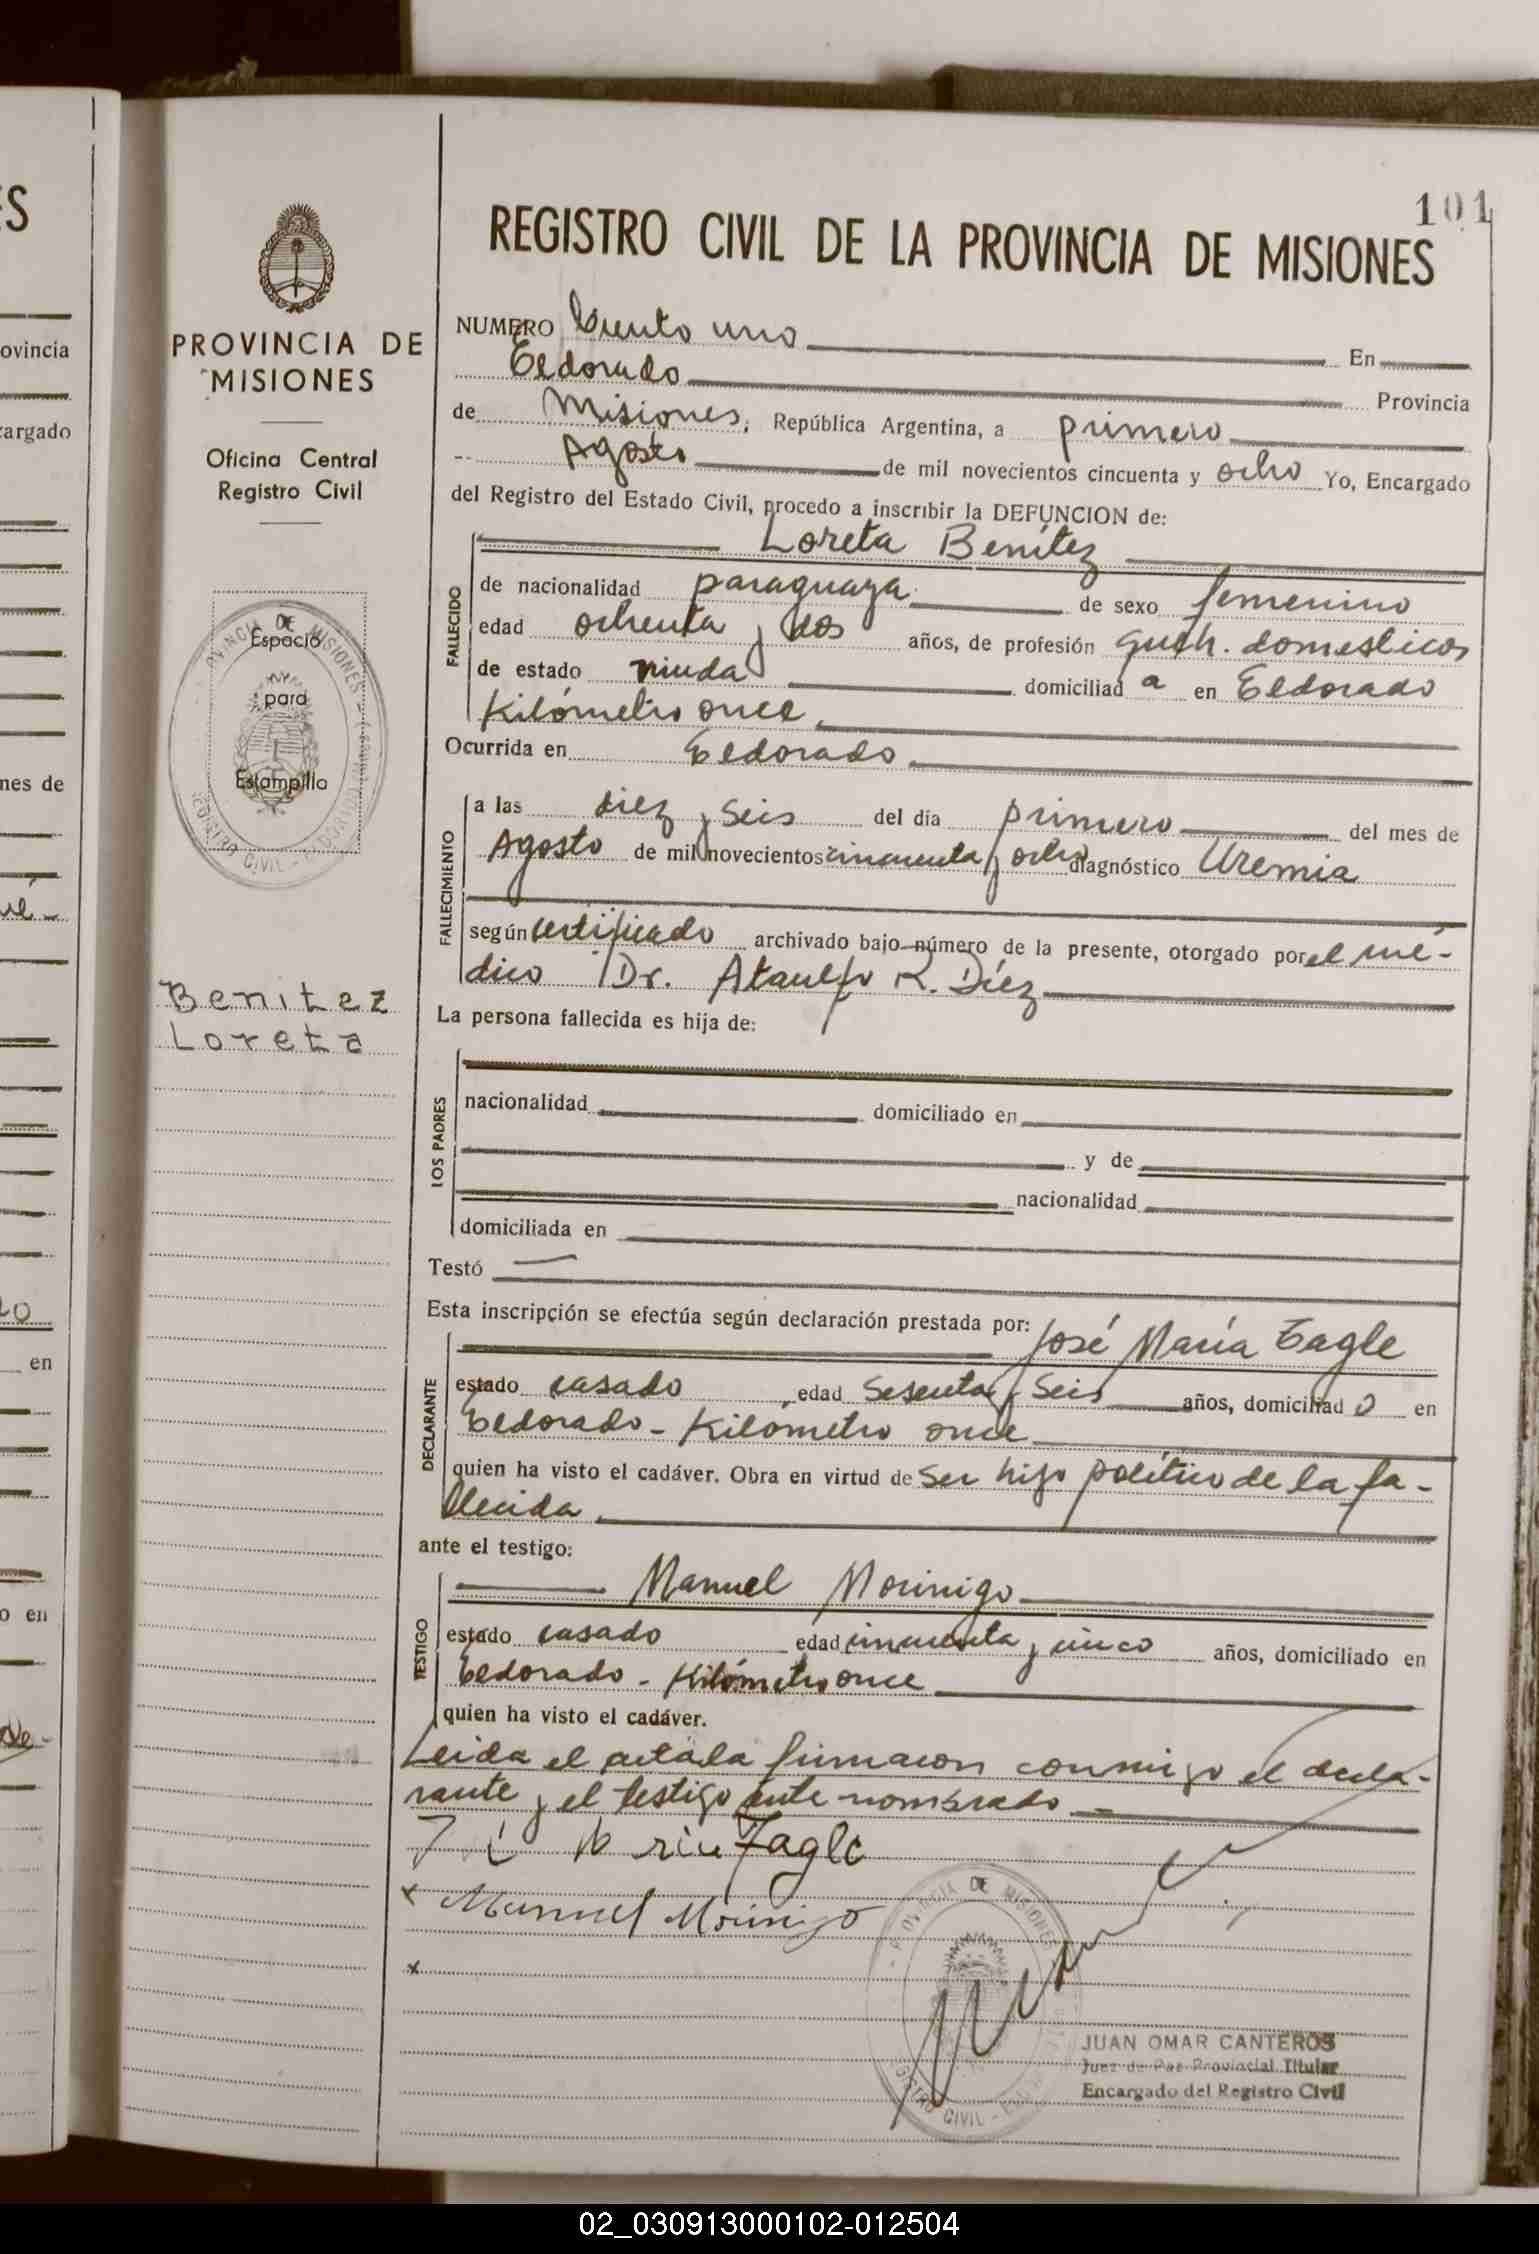 101
REGISTRO CIVIL DE LA PROVINCIA DE MISIONES
PROVINCIA DE
MISIONES
Oficina Central
Registro Civil
Espacio
para
Estampilla
Benitez
Loreta
NUMERO Ciento uno En
Eldorado Provincia
de Misiones, República Argentina, a primero
Agosto de mil novecientos cincuenta y ocho Yo, Encargado
del Registro del Estado Civil, procedo a inscribir la DEFUNCION de:
Loreta Benítez
FALLECIDO
de nacionalidad paraguaya de sexo femenino
edad ochenta y dos años, de profesión queh. domesticos
de estado viuda domiciliad a en Eldorado
Kilómetro once
Ocurrida en Eldorado
FALLECIMIENTO
a las diez y seis del día primero del mes de
Agosto de mil novecientos cincuenta y ocho diagnóstico Uremia
según certificado archivado bajo número de la presente, otorgado por el mé-
dico Dr. Ataulfo R. Díez
La persona fallecida es hija de:
LOS PADRES
nacionalidad domiciliado en
y de
nacionalidad
domiciliada en
Testó
Esta inscripción se efectúa según declaración prestada por:
José María Tagle
DECLARANTE
estado casado edad Sesenta y Seis años, domiciliad o en
Eldorado - Kilómetro once
quien ha visto el cadáver. Obra en virtud de ser hijo político de la fa-
llecida
ante el testigo:
Manuel Morinigo
TESTIGO
estado casado edad cincuenta y cinco años, domiciliado en
Eldorado - Kilómetro once
quien ha visto el cadáver.
Leida el acta la firmaron conmigo el decla-
rante y el testigo ante nombrado
Tagle
x Manuel Morinigo
x
PROVINCIA DE MISIONES
REGISTRO CIVIL - ELDORADO
JUAN OMAR CANTEROS
Juez de Paz Provincial Titular
Encargado del Registro Civil
ES
ovincia
cargado
mes de
en
o en
02_030913000102-012504